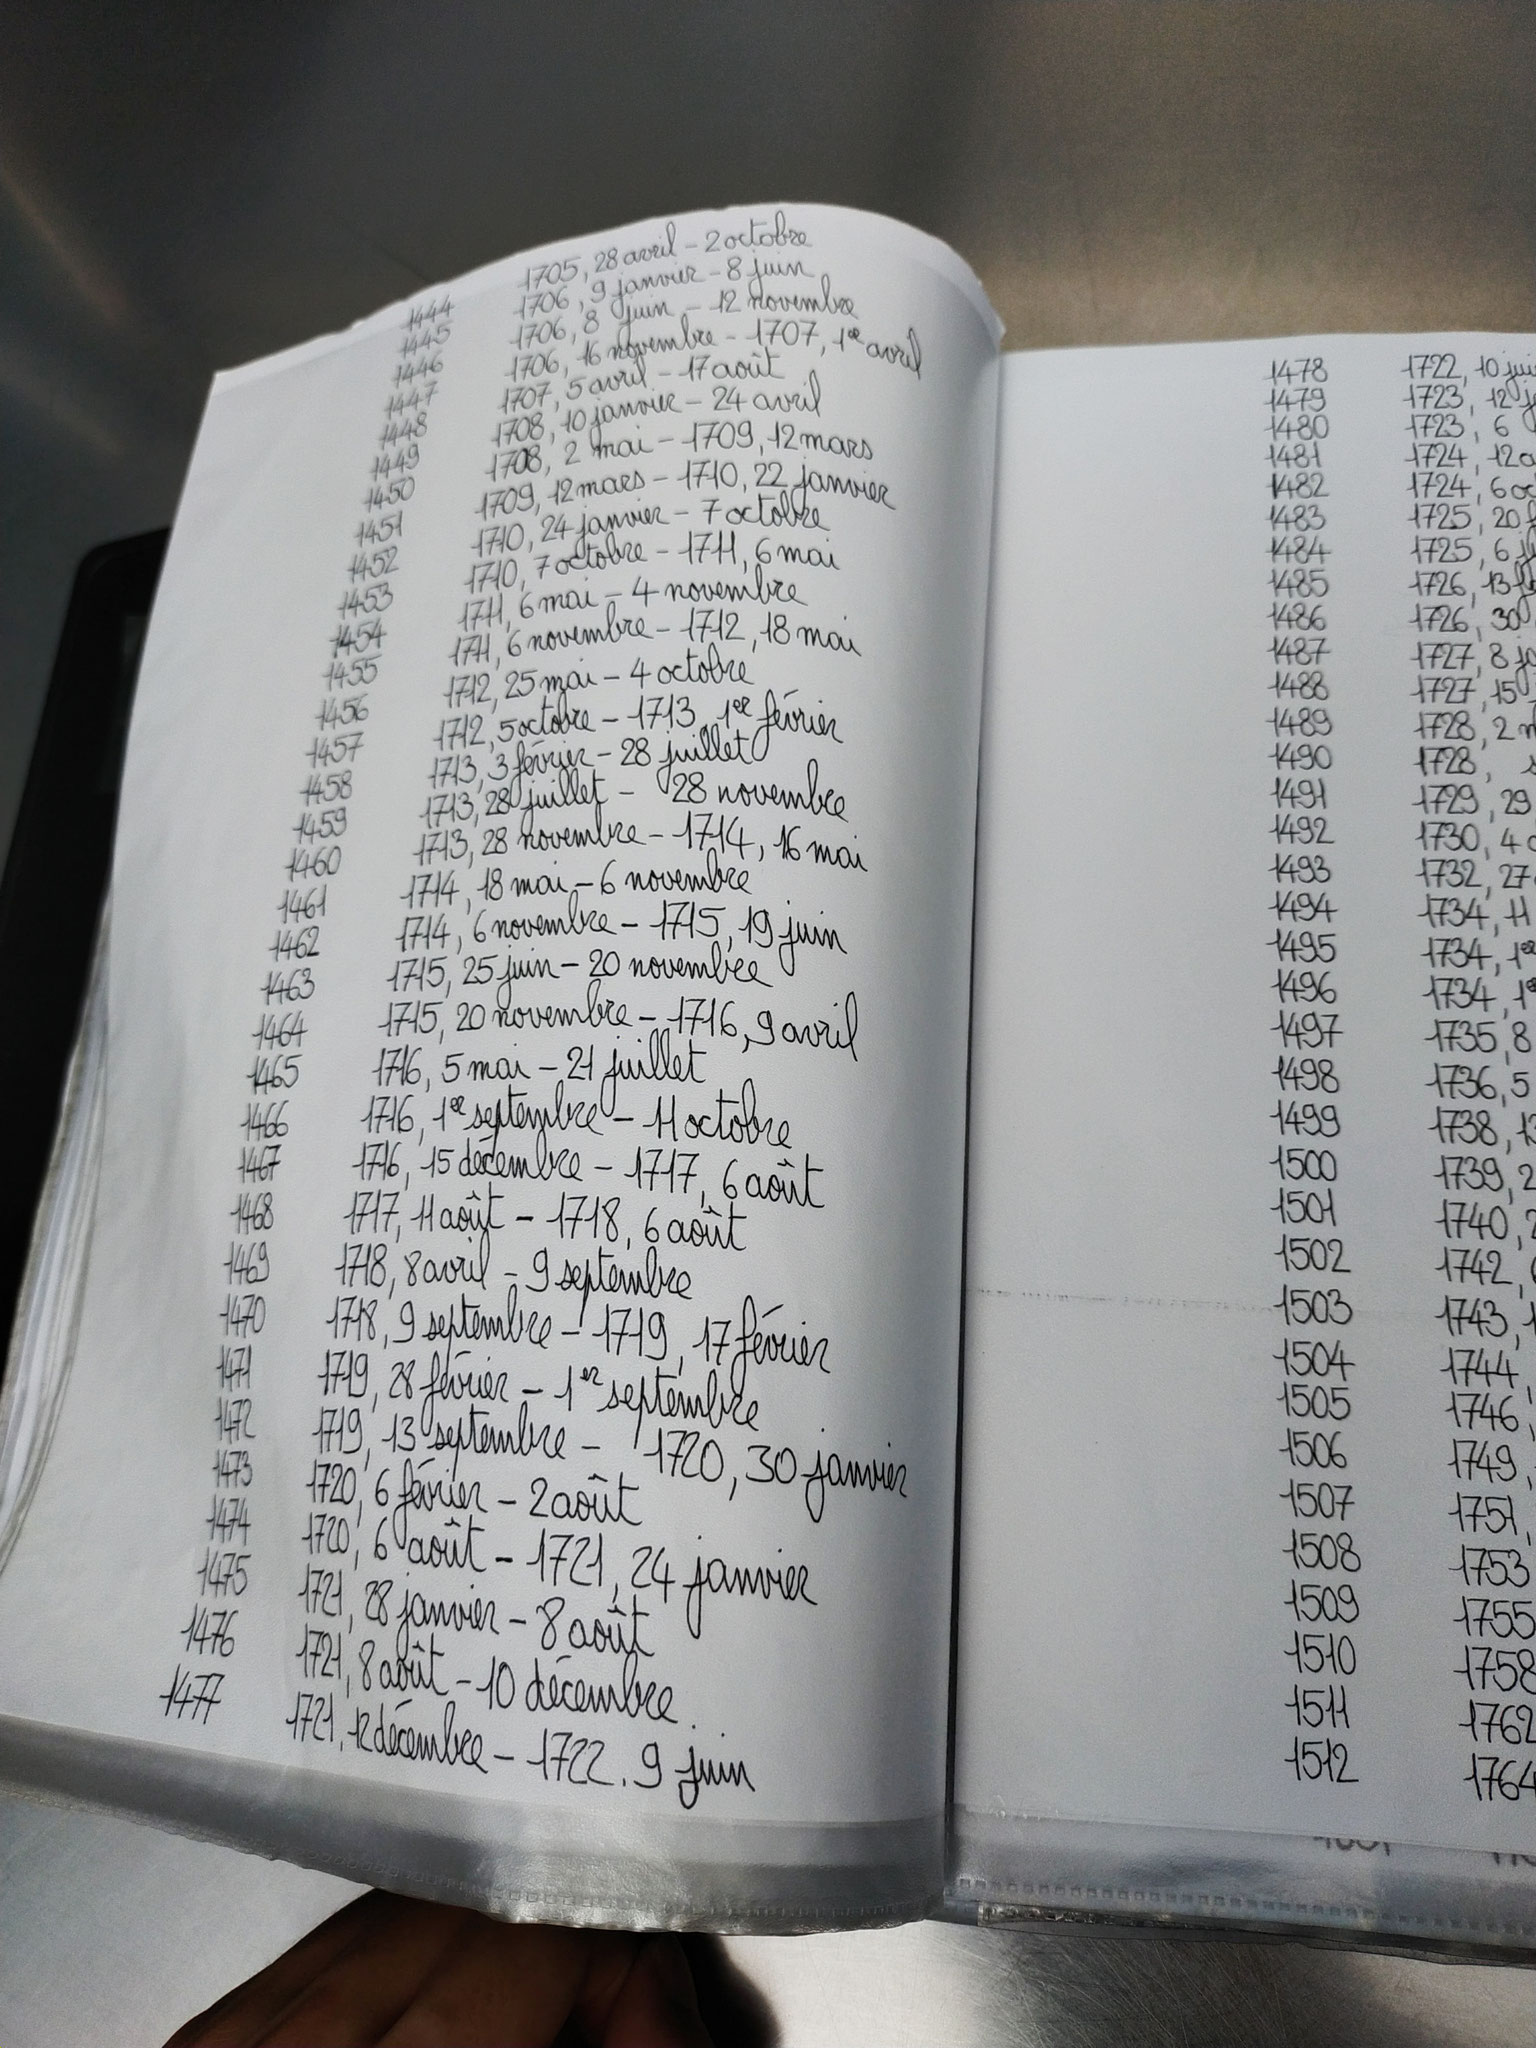 1444 1705, 28 avril - 2 octobre
1445 1706, 9 janvier - 8 juin
1446 1706, 8 juin - 12 novembre
1447 1706, 16 novembre - 1707, 1er avril
1448 1707, 5 avril - 17 août
1449 1708, 10 janvier - 24 avril
1450 1708, 2 mai - 1709, 12 mars
1451 1709, 12 mars - 1710, 22 janvier
1452 1710, 24 janvier - 7 octobre
1453 1710, 7 octobre - 1711, 6 mai
1454 1711, 6 mai - 4 novembre
1455 1711, 6 novembre - 1712, 18 mai
1456 1712, 25 mai - 4 octobre
1457 1712, 5 octobre - 1713, 1er février
1458 1713, 3 février - 28 juillet
1459 1713, 28 juillet - 28 novembre
1460 1713, 28 novembre - 1714, 16 mai
1461 1714, 18 mai - 6 novembre
1462 1714, 6 novembre - 1715, 19 juin
1463 1715, 25 juin - 20 novembre
1464 1715, 20 novembre - 1716, 9 avril
1465 1716, 5 mai - 21 juillet
1466 1716, 1er septembre - 11 octobre
1467 1716, 15 décembre - 1717, 6 août
1468 1717, 11 août - 1718, 6 août
1469 1718, 8 avril - 9 septembre
1470 1718, 9 septembre - 1719, 17 février
1471 1719, 28 février - 1er septembre
1472 1719, 13 septembre - 1720, 30 janvier
1473 1720, 6 février - 2 août
1474 1720, 6 août - 1721, 24 janvier
1475 1721, 28 janvier - 8 août
1476 1721, 8 août - 10 décembre
1477 1721, 12 décembre - 1722, 9 juin
1478 1722, 10
1479 1723, 12
1480 1723, 6
1481 1724, 12
1482 1724, 6
1483 1725, 20
1484 1725, 6
1485 1726, 13
1486 1726, 30
1487 1727, 8
1488 1727, 15
1489 1728, 2
1490 1728,
1491 1729, 29
1492 1730, 4
1493 1732, 27
1494 1734, 11
1495 1734, 1er
1496 1734, 1er
1497 1735, 8
1498 1736, 5
1499 1738, 13
1500 1739, 2
1501 1740, 2
1502 1742,
1503 1743, 1
1504 1744,
1505 1746,
1506 1749,
1507 1751,
1508 1753
1509 1755
1510 1758
1511 1762
1512 1764